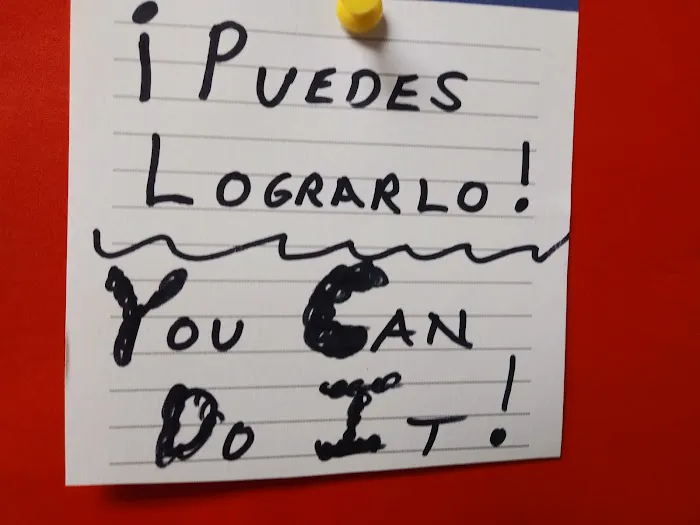 ¡PUEDES
LOGRARLO!
YOU CAN
DO IT!